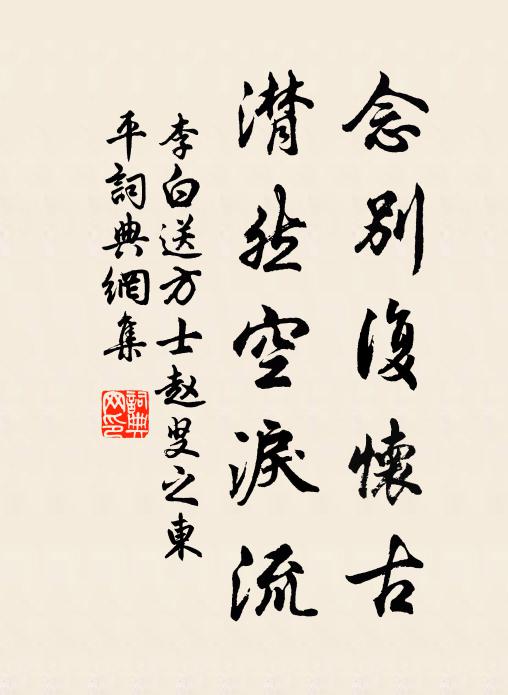 念别復懷古
潸然空淚流
李白送方士趙叟之東
平詞典網集
詞典网印